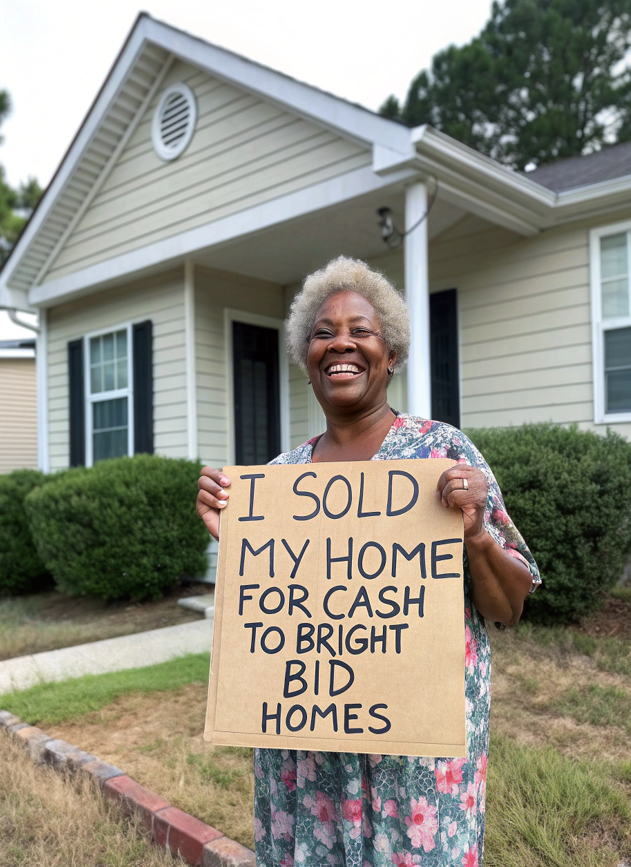 I SOLD
MY HOME
FOR CASH
TO BRIGHT
BID
HOMES